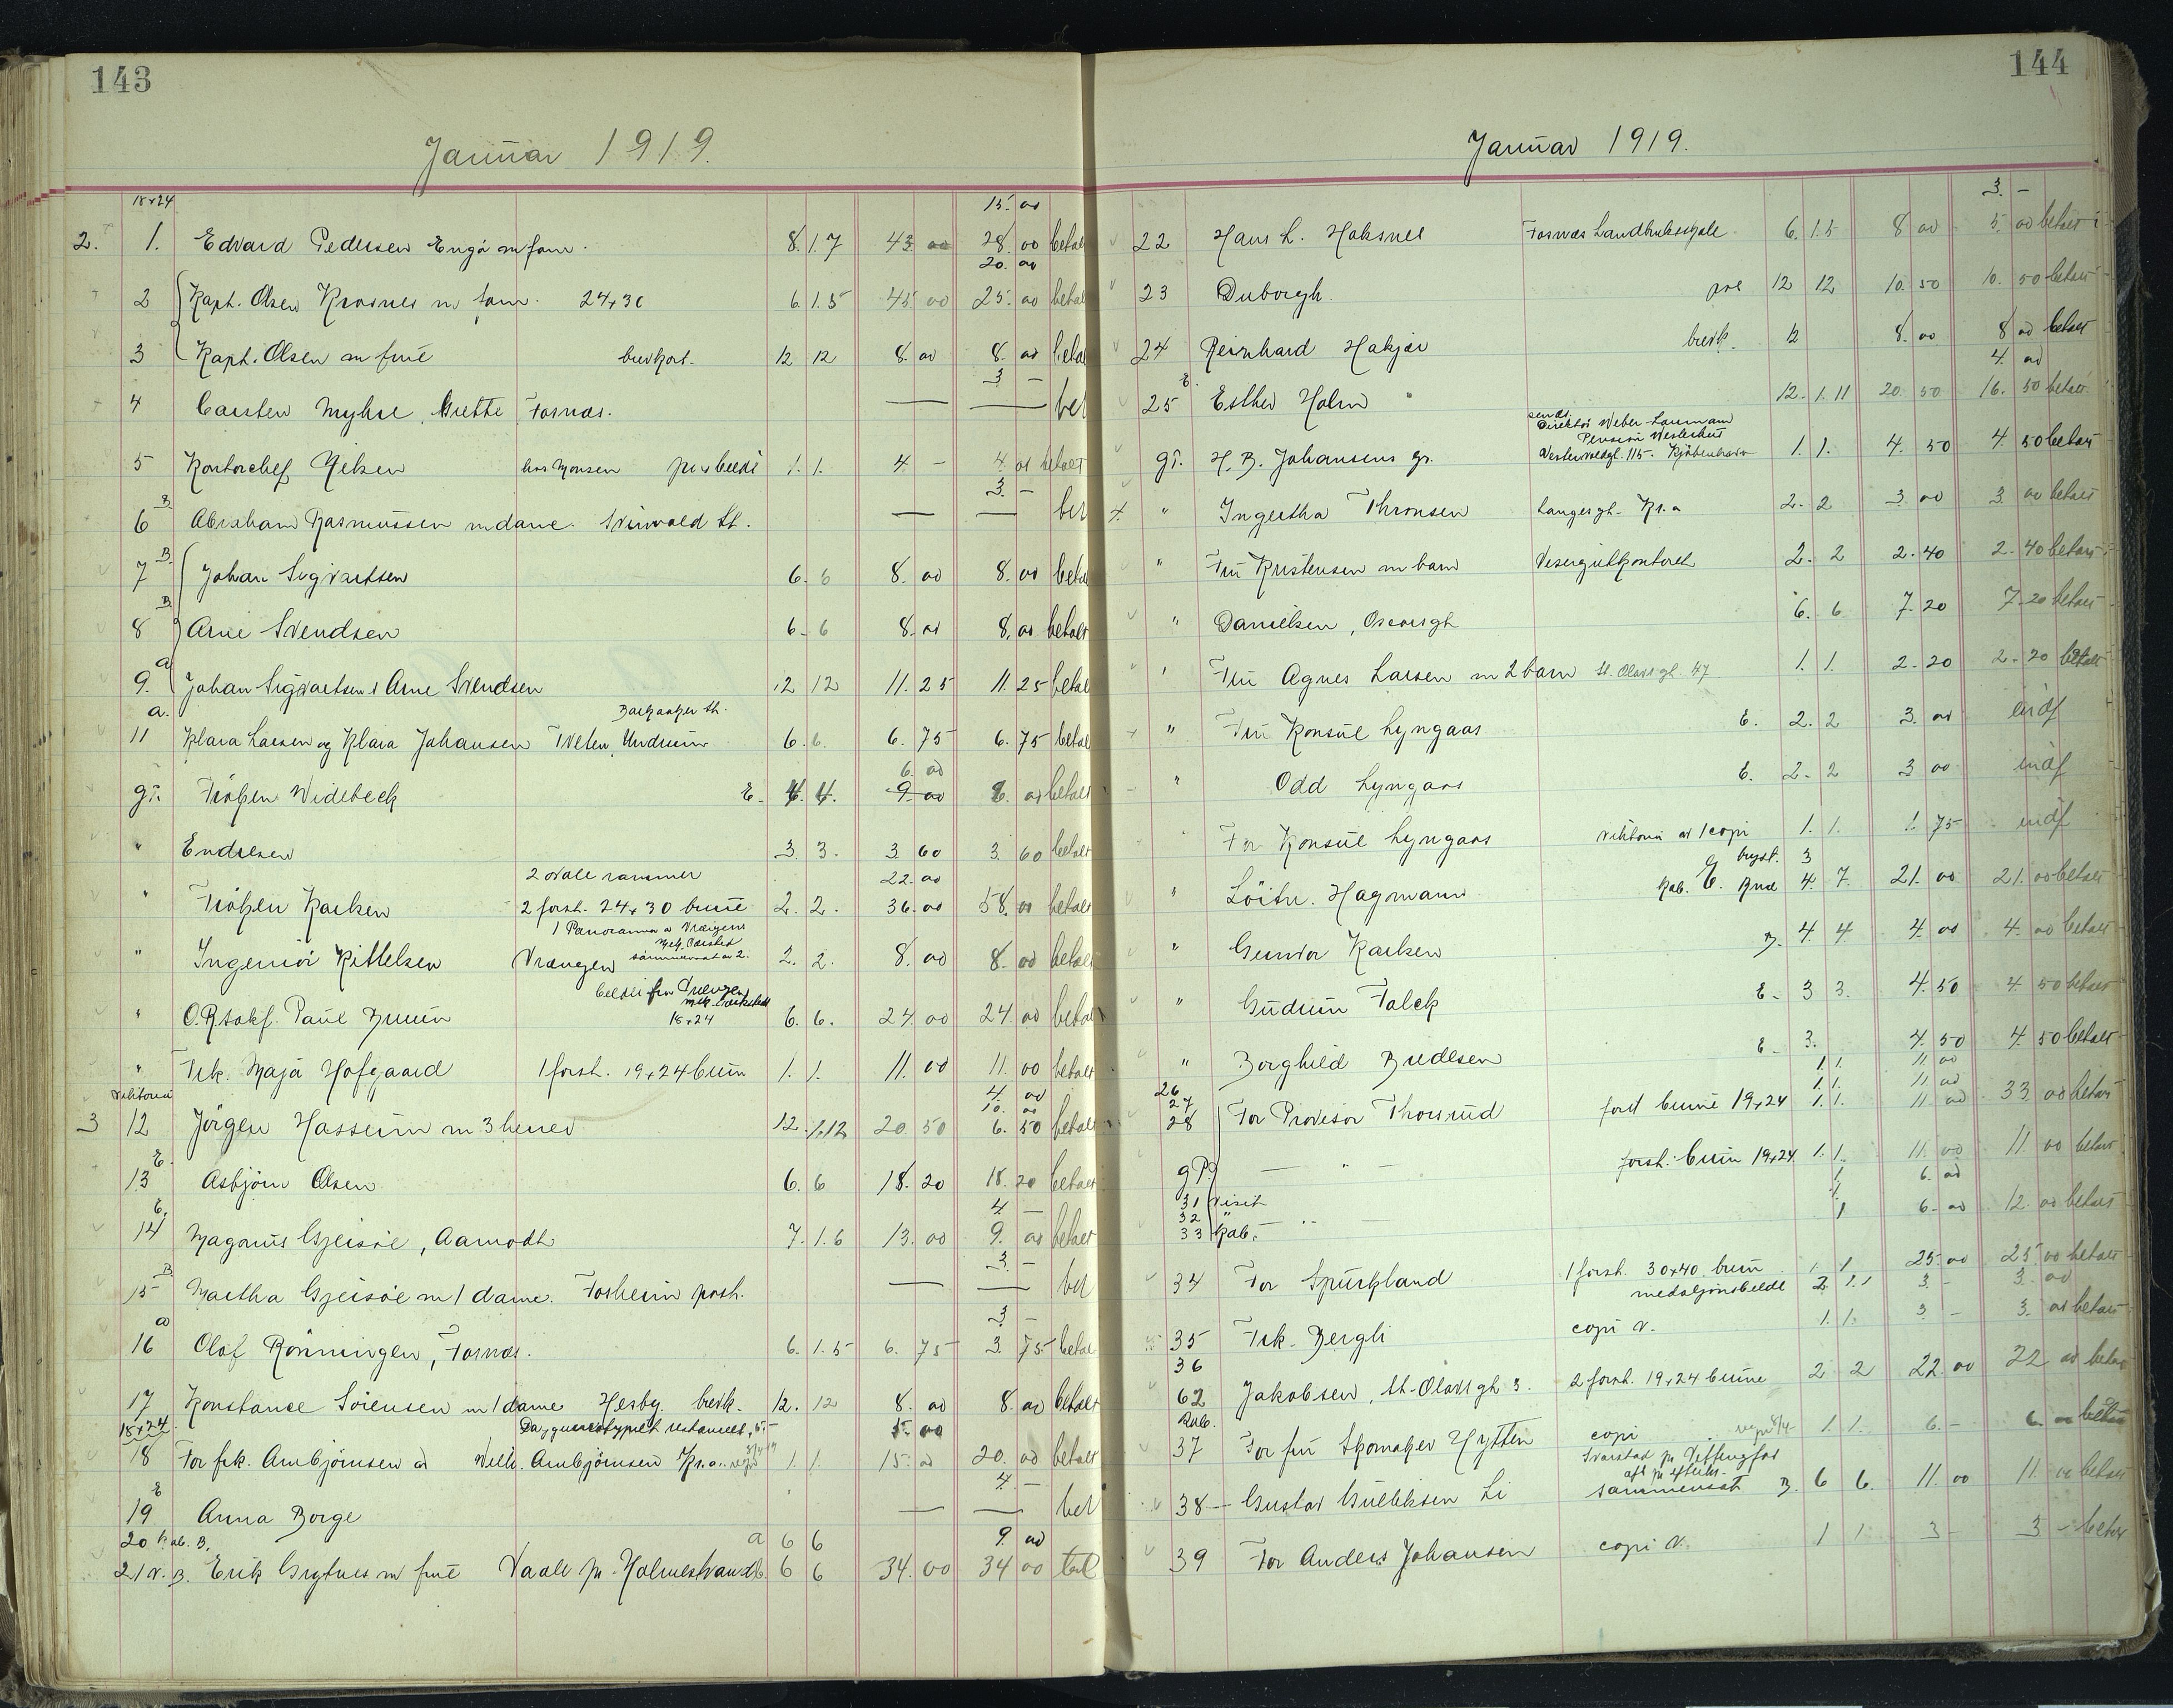 143
Januar 1919.
18x24 15. 00
2. 1. Edvard Pedersen Engø m fam. 8. 1. 7 43 00 28. 00 betalt
20. 00
2 Kapt. Olsen Krosnes m fam. 24x30 6. 1. 5 45 00 25. 00 betalt
3 Kapt. Olsen m frue brevkort. 12 12 8. 00 8. 00 betalt
3. —
4 Carsten Myhre, Grette Fosnæs. — — bet
5 Kontorchef hos Monsen 1. 1. 4. — 4. 00 betalt
B 3. —
6 Abraham Rasmussen m dame. St. — — bet
B.
7 Johan Sigvartsen 6. 6 8. 00 8. 00 betalt
B.
8 Arne Svendsen 6. 6 8. 00 8. 00 betalt
a
9. Johan Sigvartsen & Arne Svendsen 12 12 11. 25 11. 25 betalt
a. Barkaaker St.
11 Klara Larsen og Klara Johansen Tveten, Undrum 6. 6. 6. 75 6. 75 betalt
6. 00
gl. Frøken Widebeck E. 4. 4. 9. 00 6. 00 betalt
" Endresen 3. 3. 3. 60 3. 60 betalt
2 ovale rammer 22. 00
" Frøken Karlsen 2 forst. 24x30 brune 2. 2. 36. 00 58. 00 betalt
1 Panorama a Vrængens
mek. Værksted
" Ingeniør Kittelsen Vrængen sammensat av 2. 2. 2. 8. 00 8. 00 betalt
billede fra Vrængen
mek. Værksted
" O.Rsakf. Paul Bruun 18x24 6. 6. 24. 00 24. 00 betalt
" Frk. Maja Hofgaard 1 forst. 19x24 brun 1. 1. 11. 00 11. 00 betalt
Viktoria 4. 00
10. 00
3 12 Jörgen Hasseim m 3 herrer 12. 1. 12 20. 50 6. 50 betalt
E.
13 Asbjörn Olsen 6. 6 18. 20 18. 20 betalt
E. 4. —
14 Magnus Gjersøe, Aamodt 7. 1. 6 13. 00 9. 00 betalt
B 3. —
15 Martha Gjersøe m 1 dame. Fosheim posth. — — bet
a 3. —
16 Olaf Rönningen, Fosnæs. 6. 1. 5 6. 75 3. 75 betalt
17 Konstance Sörensen m 1 dame Hesby. brevk. 12. 12 8. 00 8. 00 betalt
18x24. Dagguerotypiet restaureret, 5.— 5. 00
18 For frk. Ambjörnsen Ambjörnsen Kr.a. 1. 1. 15. 00 20. 00 betalt
E 4. —
19 Anna Borge — — bet
20 kab. B. a 6 6 9. 00
21 v. B. Erik Grytnes m frue Vaale pr Holmestrand 6 6 34. 00 34 00 bet
144
Januar 1919.
3. —
22 Hans L. Haksnes Fosnæs Landbrukskole 6. 1. 5 8 00 5. 00 betalt
23 Duborgh. 12 12 10. 50 10. 50 betalt
24 Reinhard Hakjær brevk. 12 8. 00 8 00 betalt
E. 4. 00
25 Esther Holm 12. 1. 11 20. 50 16. 50 betalt
sendt.
Direktør Weber Laumann
Pension Vesterhus
gl. H. B. Johansens gr. Vestervoldgt. 115. Kjöbenhavn 1. 1. 4. 50 4. 50 betalt
" Ingertha Thronsen Langesgt. Kr.a 2. 2 3 00 3. 00 betalt
" Fru Kristensen m barn 2. 2 2. 40 2. 40 betalt
" Danielsen, Oscarsgt 6. 6 7. 20 7. 20 betalt
" Fru Agnes Larsen m 2 barn St. Olavsgt. 47 1. 1. 2. 20 2. 20 betalt
" Fru Konsul Lyngaas E. 2. 2 3. 00 indf
" Odd Lyngaas E. 2. 2 3 00 indf
" For Konsul Lyngaas Viktoria a 1 copi 1. 1. 1. 75 indf
bryst. 3
" Löitn. Hagmann kab. E. knæ 4. 7. 21. 00 21. 00 betalt
" Gunvor Karlsen B. 4. 4 4. 00 4. 00 betalt
" Gudrun Falck E. 3 3. 4. 50 4. 50 betalt
" Borghild Bredesen E. 3. 4. 50 4. 50 betalt
26 1 1. 11 00
27 1. 1. 11 00
28 For Provisor Thorsrud forst brune 19x24 1. 1. 11 00 33. 00 betalt
gP. — " — forst. brun 19x24. 1. 1. 11. 00 11. 00 betalt
31 visit 1 6. 00
32 " 1
33 kab. — " — 1 6. 00 12. 00 betalt
34 For Spurkland 1 forst. 30x40 brun 1. 1 25. 00 25. 00 betalt
medaljonsbillede 2. 1. 1 3. — 3. 00
35 Frk. Bergli copi v. 1. 1. 3 — 3. 00 betalt
36
62 Jakobsen, St. Olavsgt 3. 2 forst. 19x24 brune 2 2 22. 00 22. 00 betalt
kab.
37 For fru Skomaker Hytten copi 1. 1. 6. — 6. 00 betalt
Svarstad
38 — Gustav Gulliksen Li sammensat B. 6 6. 11. 00 11. 00 betalt
39 For Anders Johansen copi v. 1 1 3 — 3 — betalt